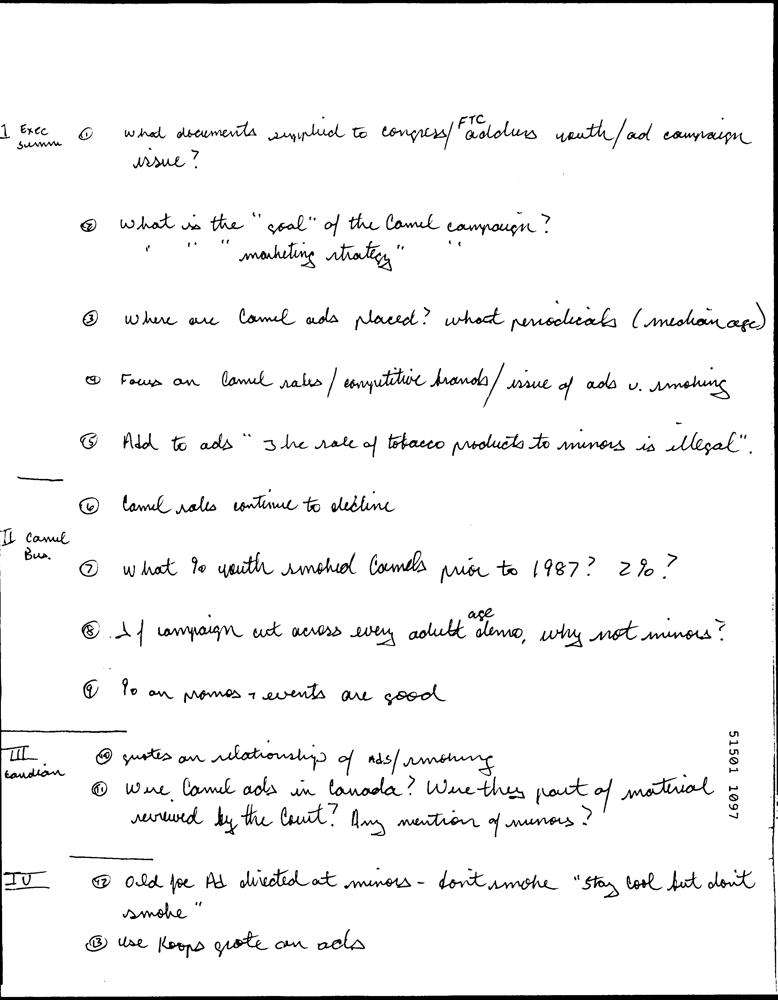 I Exec ① what documents supplied to congress/FTC address youth/ad campaign
summ issue?
② what is the "goal" of the Camel campaign?
" " " marketing strategy" "
③ Where are Camel ads placed? what periodicals (median age)
④ Focus on Camel sales/competitive brands/issue of ads v. smoking
⑤ Add to ads "The sale of tobacco products to minors is illegal".
⑥ Camel sales continue to decline
II Camel
Bus.
⑦ what % youth smoked Camels prior to 1987? 2%?
⑧ If campaign cut across every adult age demo, why not minors?
⑨ % on promos + events are good
III ⑩ quotes on relationship of ads/smoking
Candian ⑪ Were Camel ads in Canada? Were they part of material
reviewed by the Court? Any mention of minors?
IV ⑫ Old Joe Ad directed at minors - don't smoke "Stay cool but don't
smoke"
⑬ Use Koops quote on ads
51501 1097